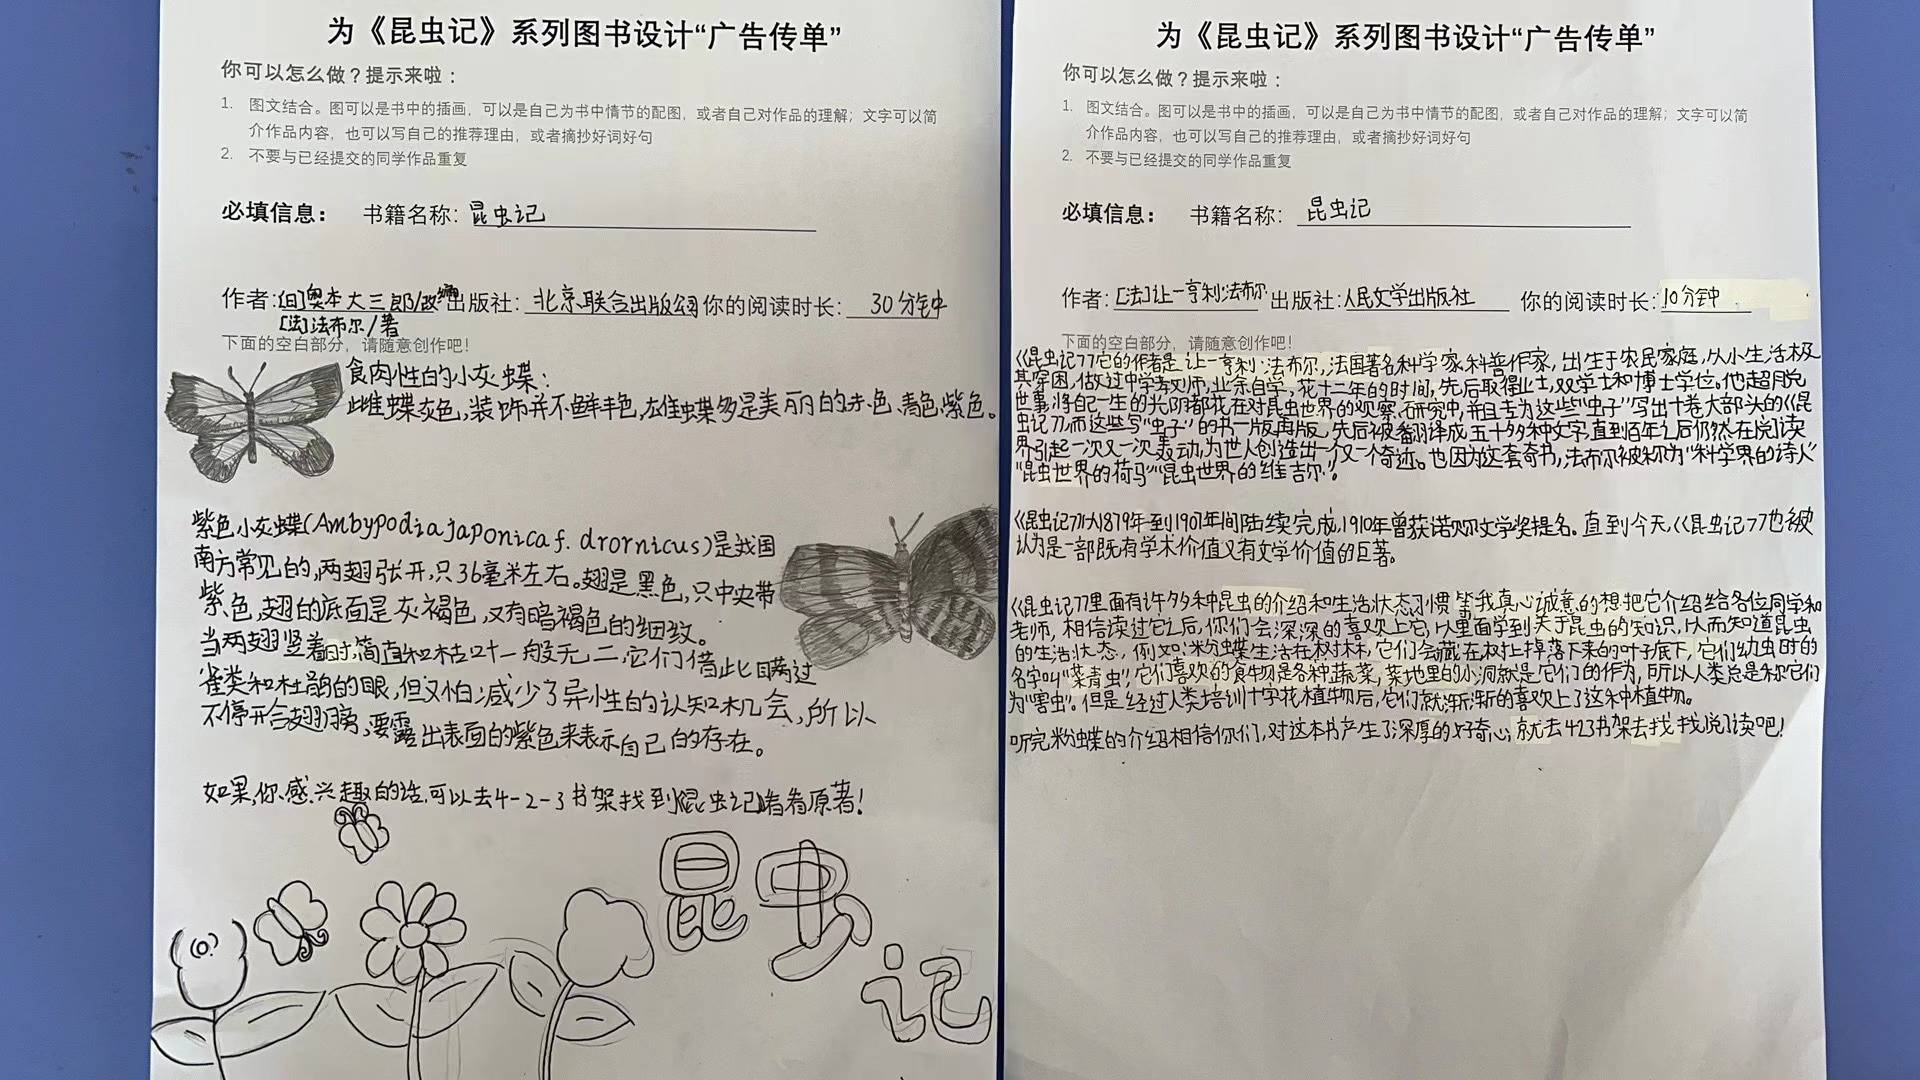 为《昆虫记》系列图书设计“广告传单”
你可以怎么做？提示来啦：
1. 图文结合。图可以是书中的插画，可以是自己为书中情节的配图，或者自己对作品的理解；文字可以简
介作品内容，也可以写自己的推荐理由，或者摘抄好词好句
2. 不要与已经提交的同学作品重复
必填信息： 书籍名称：昆虫记
作者：[日]奥本大三郎/改编 出版社：北京联合出版公司 你的阅读时长：30分钟
[法]法布尔/著
下面的空白部分，请随意创作吧！
食肉性的小灰蝶：
雌蝶灰色，装饰并不鲜艳，雄蝶多是美丽的赤色、青色、紫色。
紫色小灰蝶(Ambypodia japonica f. drornicus)是我国
南方常见的，两翅张开，只36毫米左右。翅是黑色，只中央带
紫色，翅的底面是灰褐色，又有暗褐色的细纹。
当两翅竖着时，简直和枯叶一般无二，它们借此瞒过
雀类和杜鹃的眼，但又怕减少了异性的认知机会，所以
不停开合翅膀，要露出表面的紫色来表示自己的存在。
如果你感兴趣的话，可以去4-2-3书架找到《昆虫记》看看原著！
昆虫记
为《昆虫记》系列图书设计“广告传单”
你可以怎么做？提示来啦：
1. 图文结合。图可以是书中的插画，可以是自己为书中情节的配图，或者自己对作品的理解；文字可以简
介作品内容，也可以写自己的推荐理由，或者摘抄好词好句
2. 不要与已经提交的同学作品重复
必填信息： 书籍名称：昆虫记
作者：[法]让一亨利·法布尔 出版社：人民文学出版社 你的阅读时长：10分钟
下面的空白部分，请随意创作吧！
《昆虫记》它的作者是 让一亨利·法布尔，法国著名科学家，科普作家，出生于农民家庭，从小生活极
其穷困，做过中学教师，业余自学，花十二年的时间，先后取得业士，双学士和博士学位。他超脱
世事，将自己一生的光阴都花在对昆虫世界的观察、研究中，并且专为这些“虫子”写出十卷大部头的《昆
虫记》，而这些写“虫子”的书一版再版，先后被翻译成五十多种文字，直到百年之后仍然在阅读
界引起一次又一次轰动，为世人创造出一个又一个奇迹。也因为这套奇书，法布尔被称为“科学界的诗人”
“昆虫世界的荷马”“昆虫世界的维吉尔”！
《昆虫记》从1879年到1907年间陆续完成，1910年曾获诺贝尔文学奖提名。直到今天，《昆虫记》也被
认为是一部既有学术价值又有文学价值的巨著。
《昆虫记》里面有许多种昆虫的介绍和生活状态习惯等我真心诚意的想把它介绍给各位同学和
老师，相信读过它之后，你们会深深的喜欢上它，从里面学到关于昆虫的知识，从而知道昆虫
的生活状态，例如：粉蝶生活在树林，它们会藏在树上掉落下来的叶子底下，它们幼虫时的
名字叫“菜青虫”，它们喜欢的食物是各种蔬菜，菜地里的小洞就是它们的作为，所以人类总是称它们
为“害虫”。但是经过人类培训十字花植物后，它们就渐渐的喜欢上了这种植物。
听完粉蝶的介绍相信你们，对这本书产生了深厚的好奇心，就去423书架去找找阅读吧！